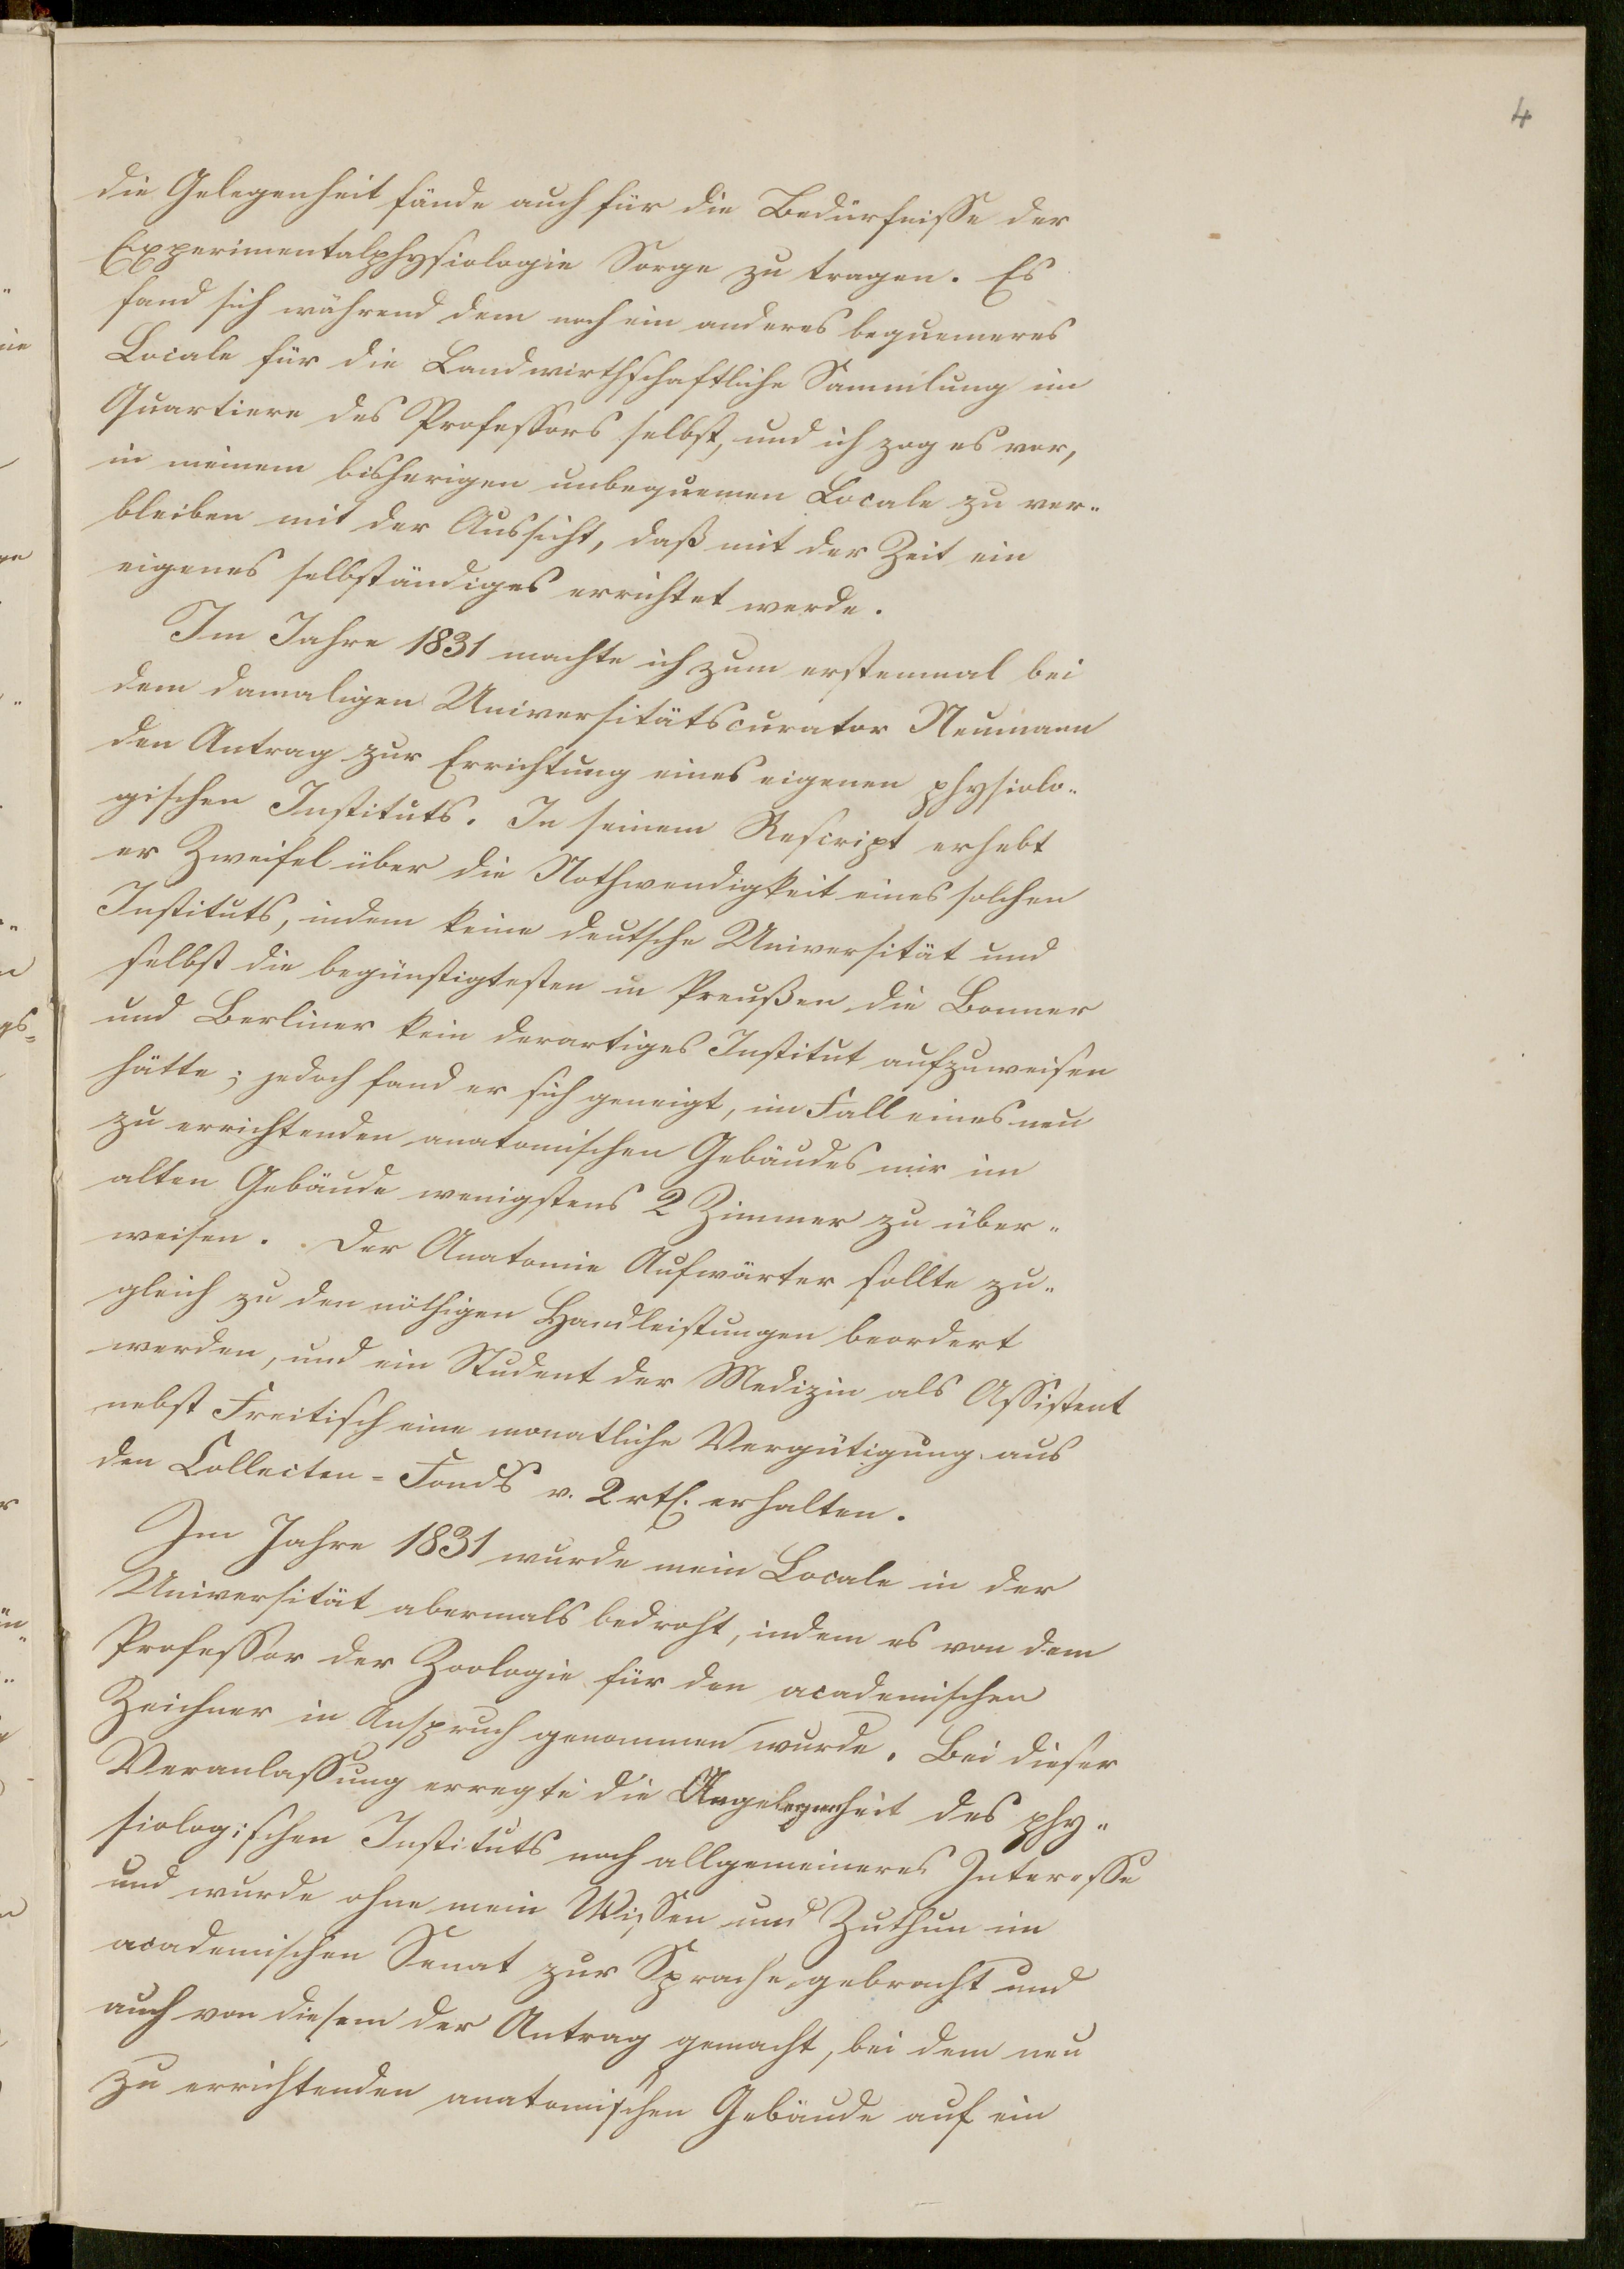 4
die Gelegenheit fände auch für die Bedürfniße der
Experimentalphysiologie Sorge zu tragen. Es
fand sich während dem noch ein anderes bequemeres
Locale für die Landwirthschaftliche Sammlung im
Quartiere des Profeßors selbst, und ich zog es vor,
in meinem bisherigen unbequemen Locale zu ver-
bleiben mit der Aussicht, daß mit der Zeit ein
eigenes selbständiges errichtet werde.
Im Jahre 1831 machte ich zum erstenmal bei
dem damaligen Universitätscurator Neumann
den Antrag zur Errichtung eines eigenen physiolo-
gischen Instituts. In seinem Rescript erhebt
er Zweifel über die Nothwendigkeit eines solchen
Instituts, indem keine deutsche Universität und
selbst die begünstigtesten in Preußen die Bonner
und Berliner kein derartiges Institut aufzuweisen
hätte; jedoch fand er sich geneigt, im Fall eines neu
zu errichtenden anatomischen Gebäudes mir im
alten Gebäude wenigstens 2 Zimmer zu über-
weisen. Der Anatomie Aufwärter sollte zu-
gleich zu den nöthigen Handleistungen beordert
werden, und ein Student der Medizin als Aßistent
nebst Freitisch eine monatliche Vergütigung aus
den Collecten-Fonds v. 2 rtl. erhalten.
Im Jahre 1831 wurde mein Locale in der
Universität abermals bedroht, indem es von dem
Profeßor der Zoologie für den academischen
Zeichner in Anspruch genommen wurde. Bei dieser
Veranlaßung erregte die Angelegenheit des phy-
siologischen Instituts noch allgemeineres Intereße
und wurde ohne mein Wißen und Zuthun im
academischen Senat zur Sprache gebracht und
auch von diesem der Antrag gemacht, bei dem neu
zu errichtenden anatomischen Gebäude auf ein